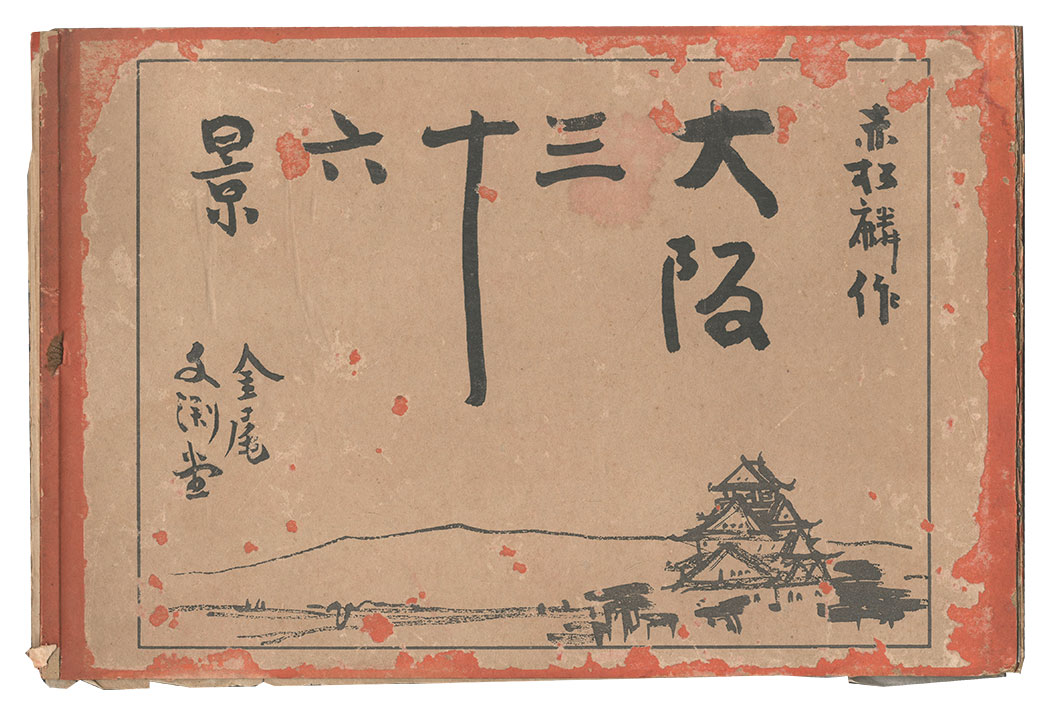 赤松麟作
大阪三十六景
金尾
文渕堂